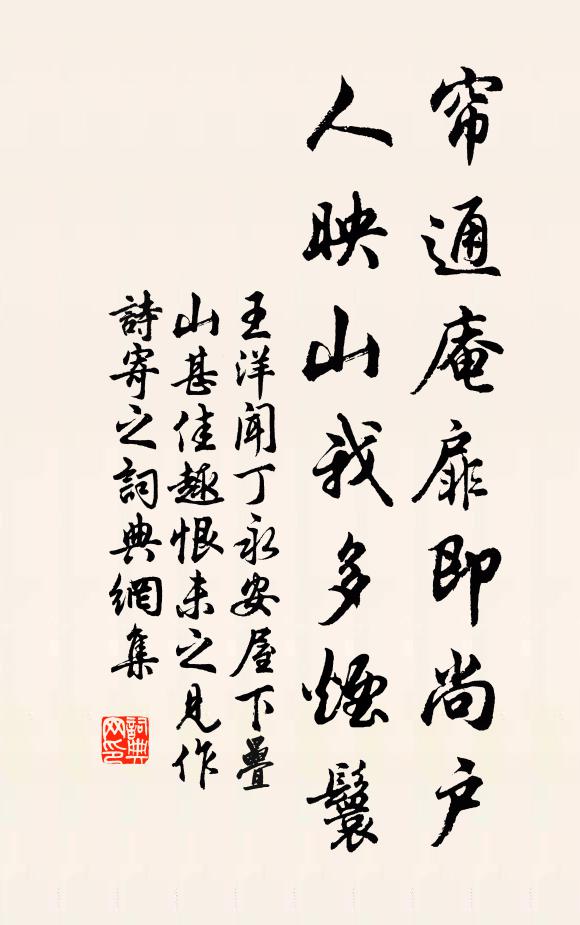 帘通庵扉即尚户
人映山我多煙鬟
王洋聞丁永安屋下疊
山甚佳趣恨未之見作
詩寄之詞典網集
詞典
网印